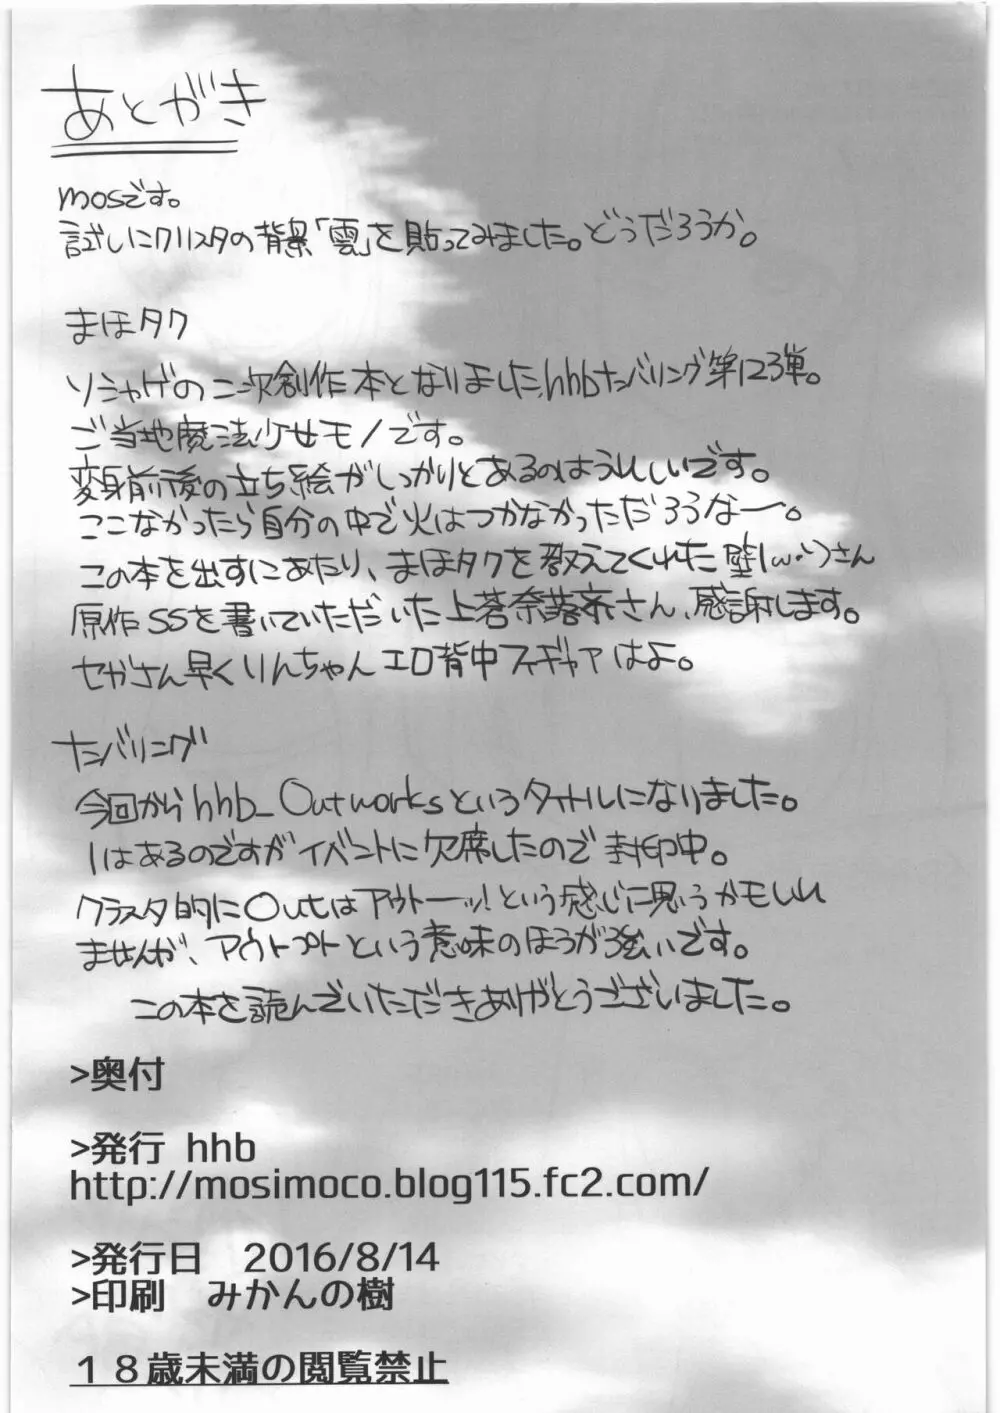 あとがき
mosです。
試しにクリスタの背景「雲」を貼ってみました。どうだろうか。
まほタク
ソシャゲの二次創作本となりました、hhbナンバリング第123弾。
ご当地魔法少女モノです。
変身前後の立ち絵がしっかりとあるのはうれしいです。
ここなかったら自分の中で火はつかなかっただろうなー。
この本を出すにあたり、まほタクを教えてくれた壁|ω・)さん
原作SSを書いていただいた上蒼奈落さん、感謝します。
セガさん早くりんちゃんエロ背中フィギャアはよ。
ナンバリング
今回からhhb_Outworksというタイトルになりました。
1はあるのですがイベントに欠席したので封印中。
クラスタ的にOutはアウトーッ!という感じに思うかもしれ
ませんが、アウトプットという意味のほうが強いです。
この本を読んでいただきありがとうございました。
>奥付
>発行 hhb
http://mosimoco.blog115.fc2.com/
>発行日 2016/8/14
>印刷 みかんの樹
18歳未満の閲覧禁止